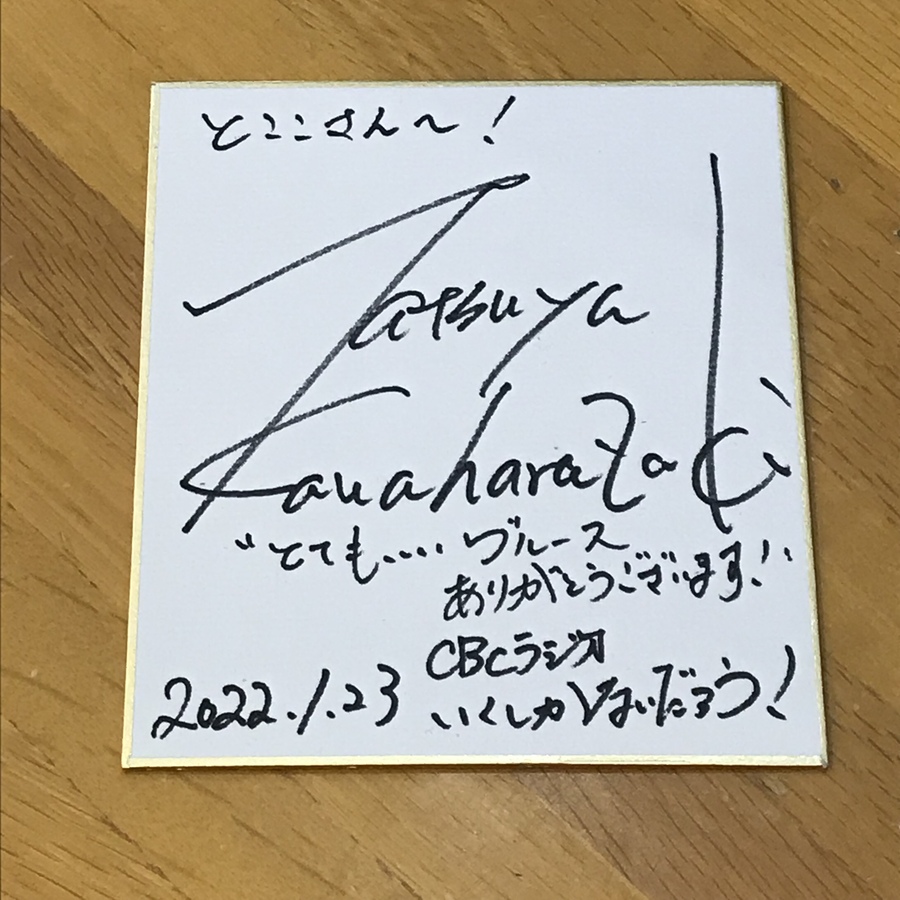 とここさん〜!
Tatsuya
Kawaharazaki
"とても.... ブルース
ありがとうございます!"
CBCラジオ
2022.1.23 いくしかないだろう!